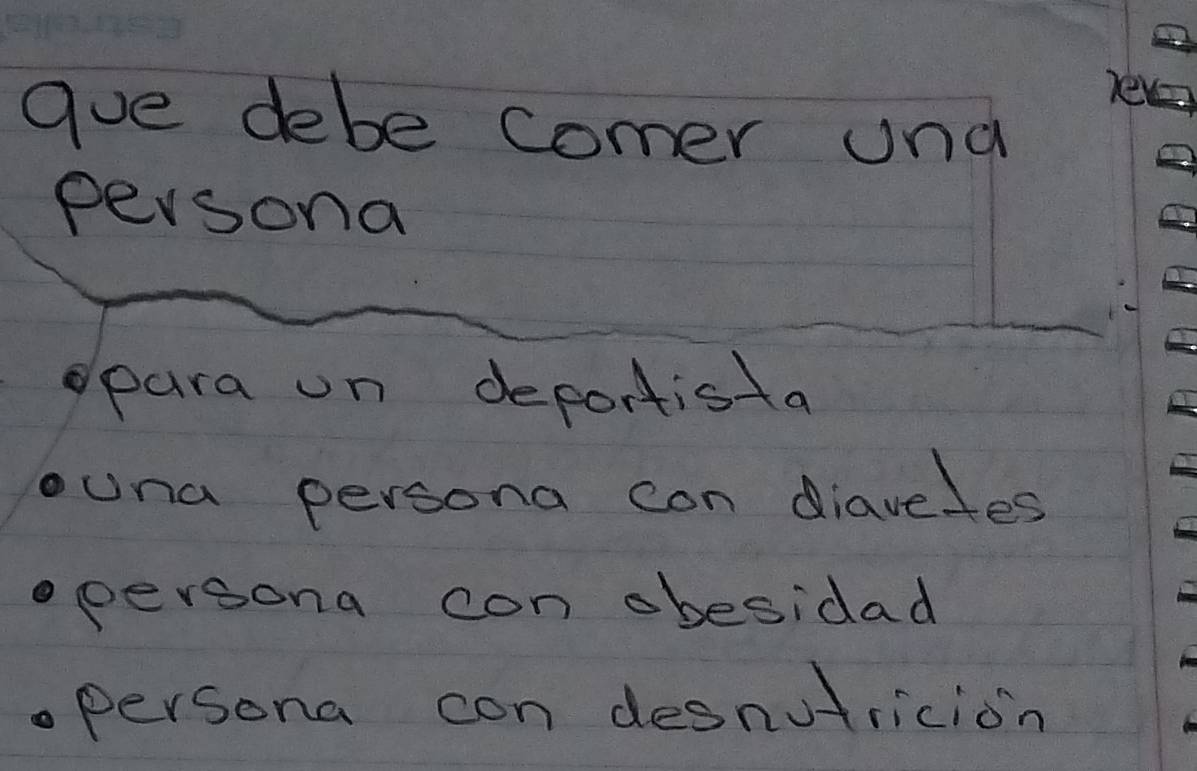 que debe comer una
persona
para un deportista
una persona con diavetes
persona con obesidad
persona con desnutrición